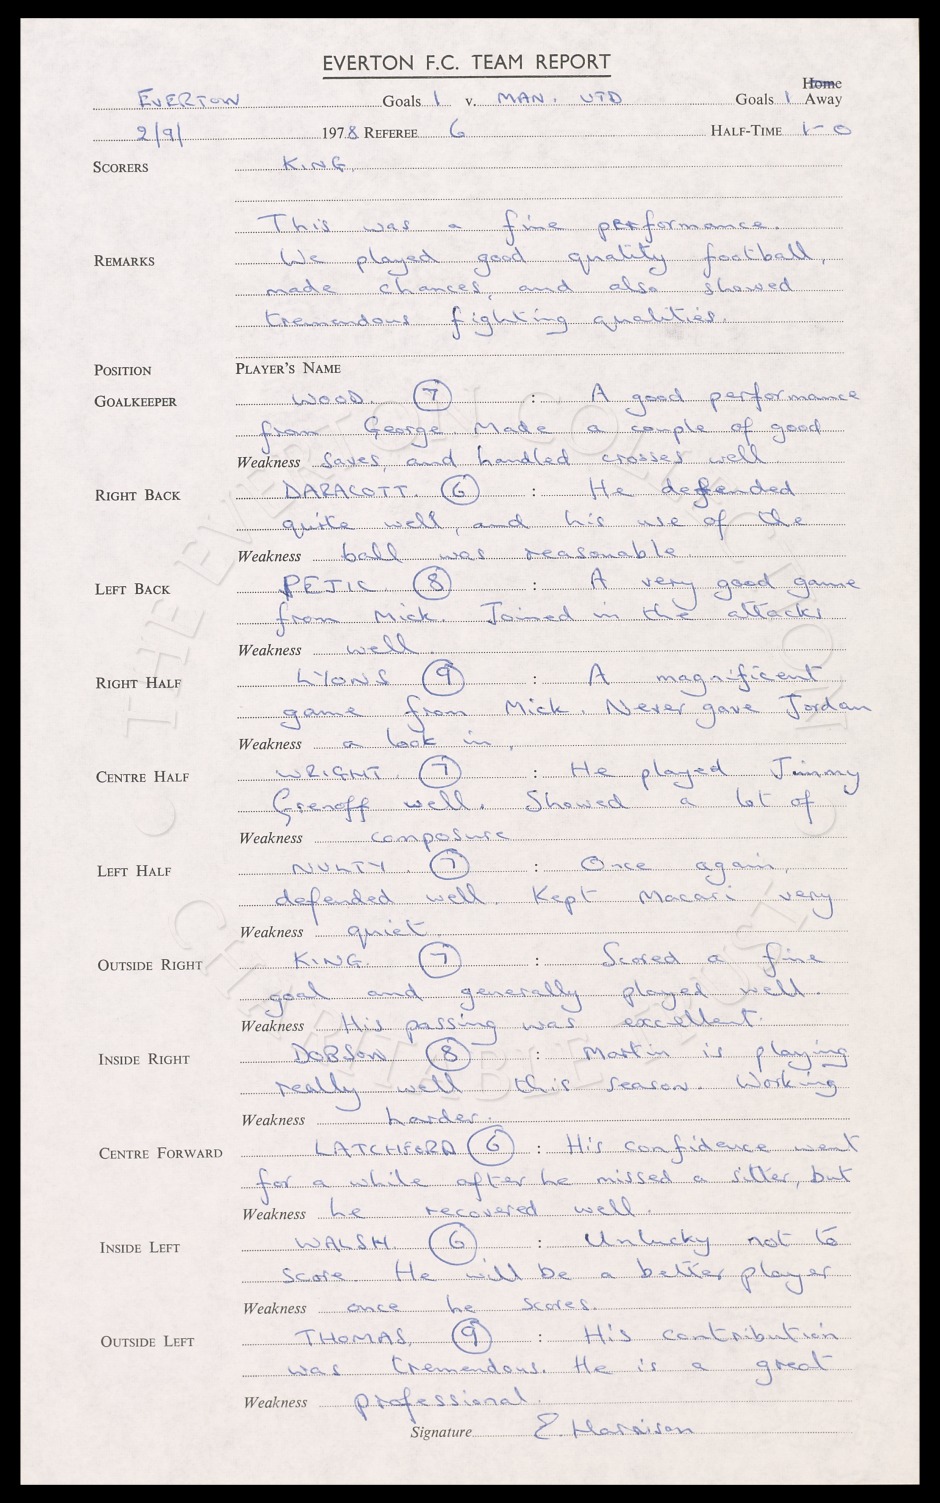 EVERTON F.C. TEAM REPORT
Home
EVERTON Goals 1 v. MAN. UTD Goals 1 Away
2/9/ 1978 REFEREE 6 HALF-TIME 1-0
SCORERS KING.
This was a fine performance.
REMARKS We played good quality football,
made chances, and also showed
tremendous fighting qualities.
POSITION PLAYER'S NAME
GOALKEEPER WOOD. 7 : A good performance
from George. Made a couple of good
Weakness saves, and handled crosses well
RIGHT BACK DARACOTT. 6 : He defended
quite well, and his use of the
Weakness ball was reasonable
LEFT BACK PEJIC 8 : A very good game
from Mick. Joined in the attacks
Weakness well.
RIGHT HALF LYONS 9 : A magnificent
game from Mick. Never gave Jordan
Weakness a look in.
CENTRE HALF WRIGHT. 7 : He played Jimmy
Grenoff well. Showed a lot of
Weakness composure
LEFT HALF NULTY. 7 : Once again,
defended well. Kept Macari very
Weakness quiet.
OUTSIDE RIGHT KING. 7 : Scored a fine
goal and generally played well.
Weakness His passing was excellent.
INSIDE RIGHT DOBSON 8 : Martin is playing
really well this season. Working
Weakness harder.
CENTRE FORWARD LATCHFORD 6 : His confidence went
for a while after he missed a sitter, but
Weakness he recovered well.
INSIDE LEFT WALSH. 6 : Unlucky not to
score. He will be a better player
Weakness once he scores.
OUTSIDE LEFT THOMAS. 9 : His contribution
was tremendous. He is a great
Weakness professional.
Signature E. Harrison
© THE EVERTON COLLECTION CHARITABLE TRUST